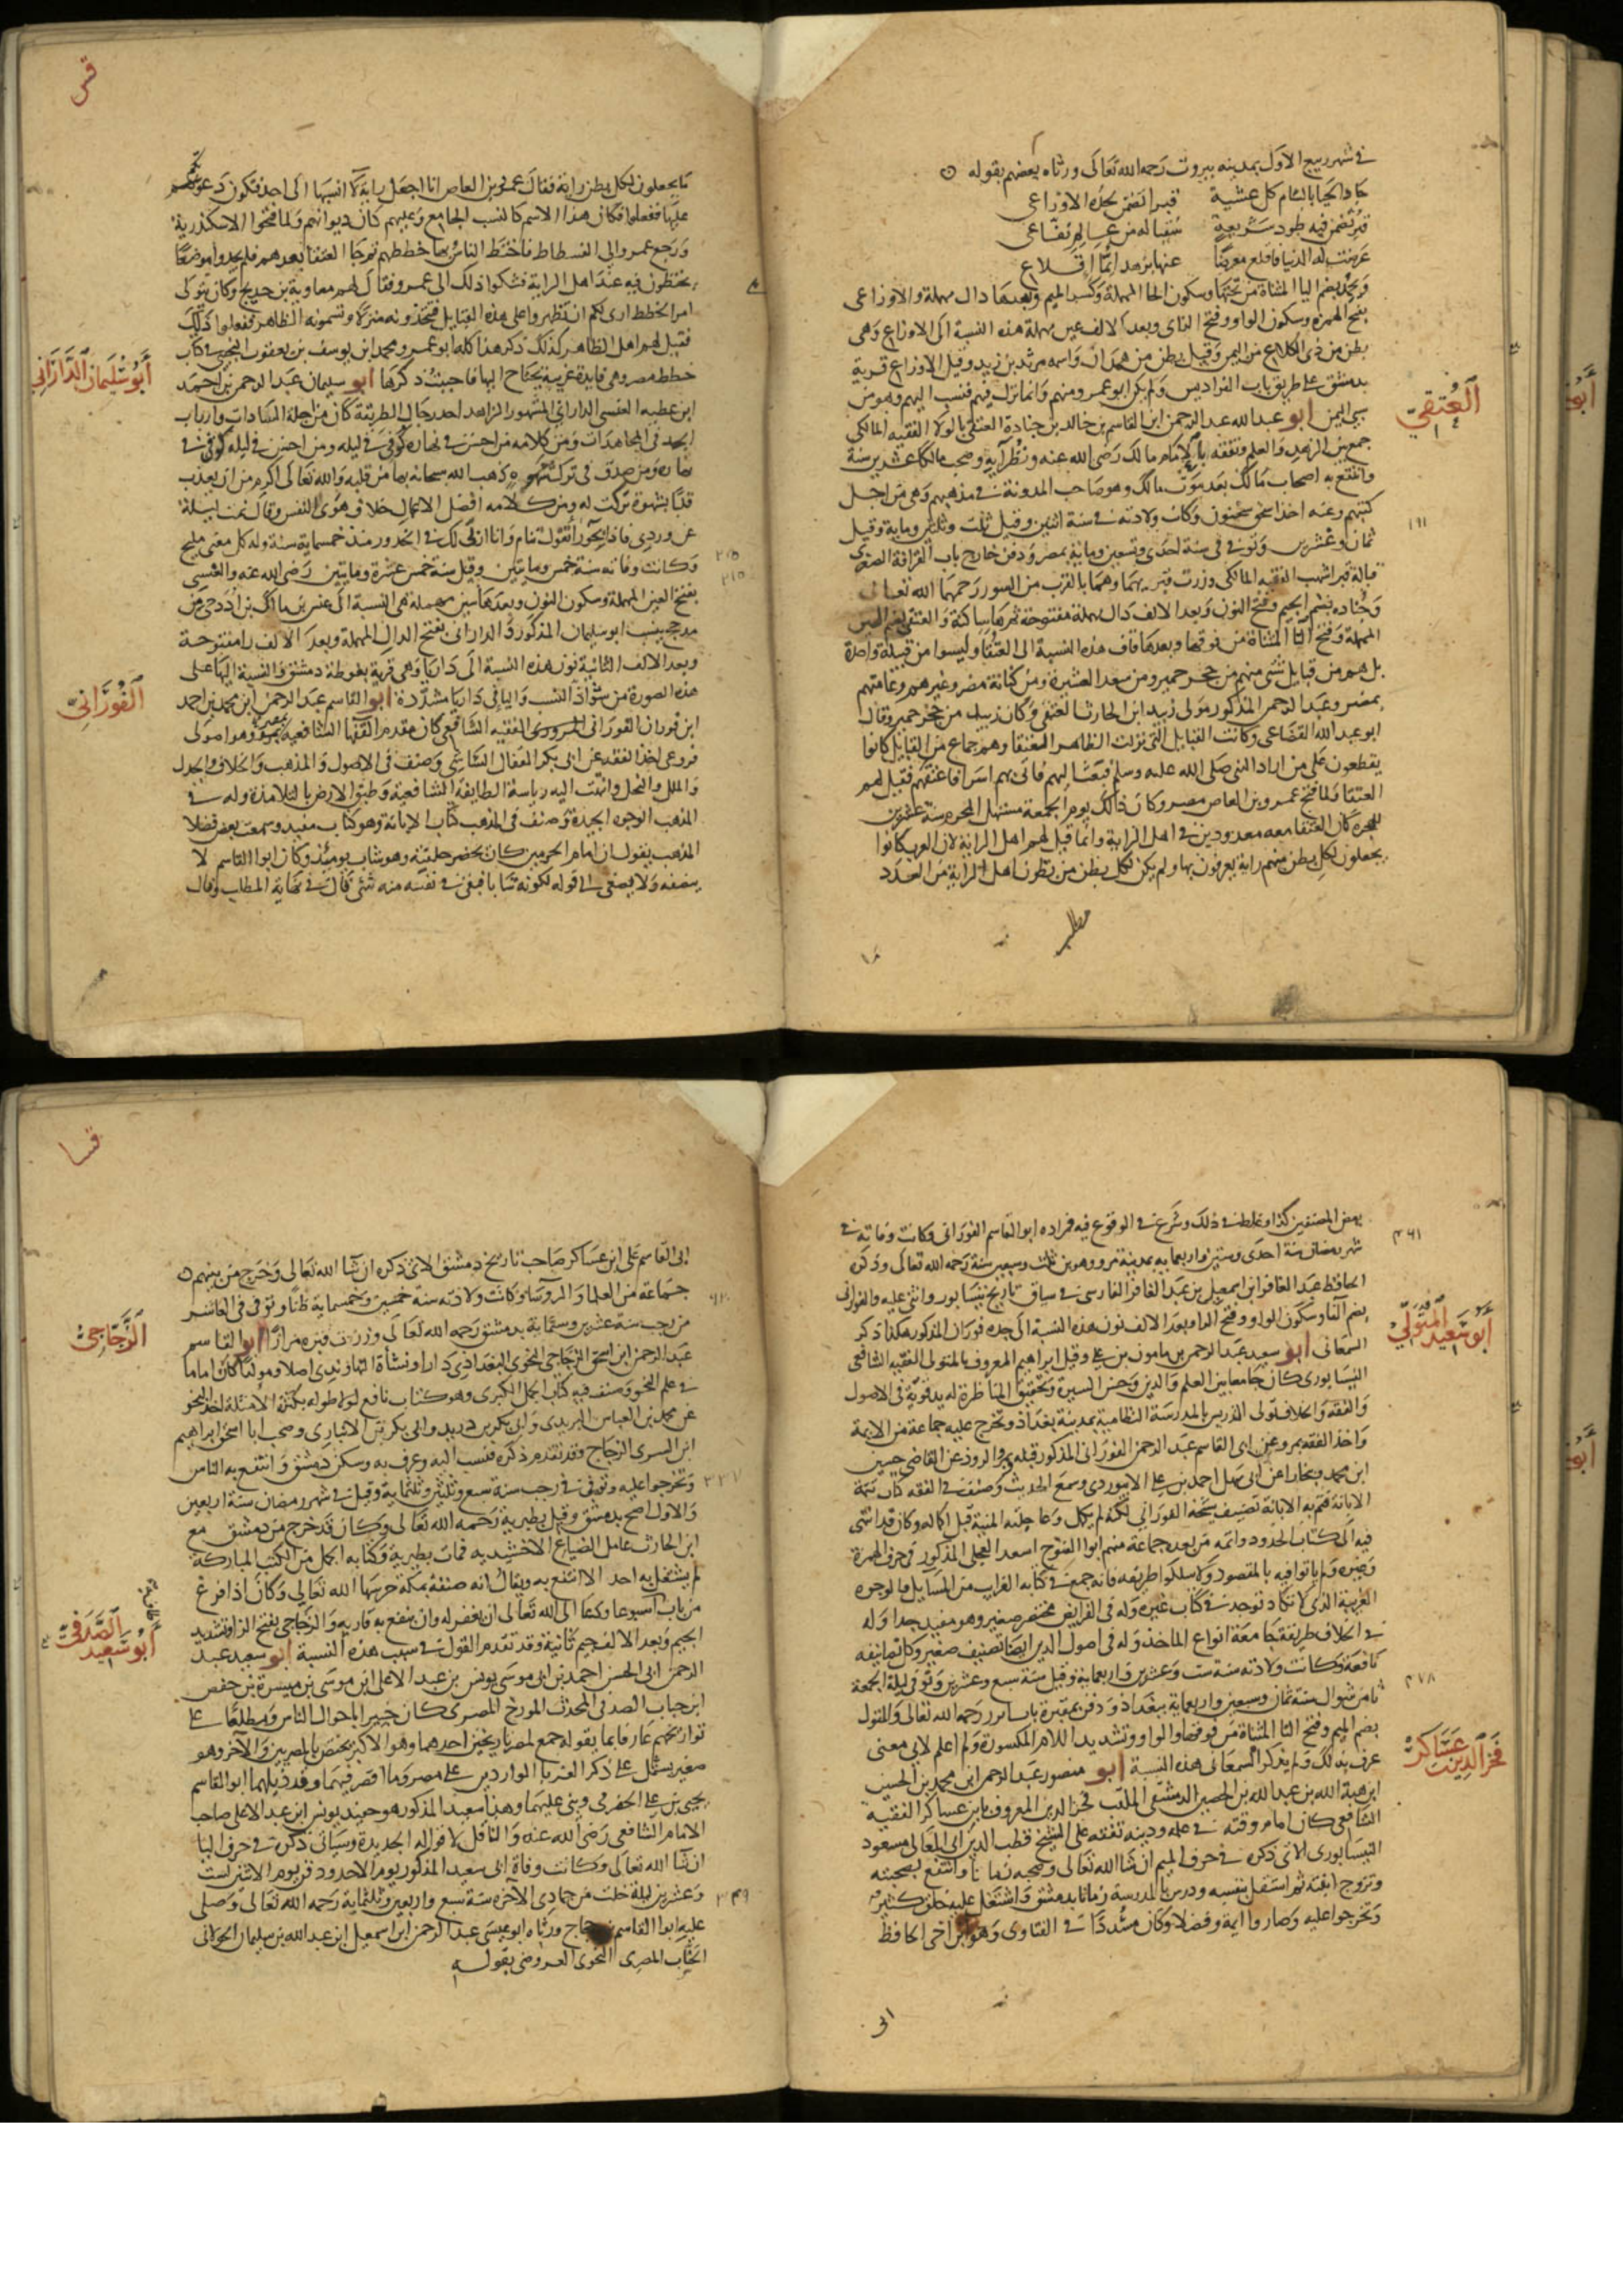 في شهر ربيع الاول بمدينه بيروت رحمه الله تعالى ورثاه بعضهم بقوله
جاد الحيا بالشام كل عشية قبرا تضمن لحده الاوزاعي
قبر تضمن فيه طود شريعة سقيا له من عالم نفاع
عرضت له الدنيا فاقلع معرضا عنها بزهد ايما اقلاع
ويحمد بضم اليا المثناة من تحتها وسكون الحا المهملة وكسر الميم وبعدها دال مهملة والاوزاعي
بفتح الهمزة وسكون الواو وفتح الزاى وبعد الالف عين مهملة هذه النسبة الى الاوزاع وهي
بطن من ذى الكلاع من اليمن وقيل بطن من همدان واسمه مرثد بن زيد وقيل الاوزاع قرية
بدمشق على طريق باب الفراديس ولم يكن ابو عمرو منهم وانما نزل فيهم فنسب اليهم وهو من
سبي اليمن ابو عبد الله عبد الرحمن ابن القاسم بن خالد بن جنادة العتقي بالولا الفقيه المالكي
العتقي
جمع بين الزهد والعلم وتفقه بالامام مالك رضى الله عنه ونظرآيه وصحب مالكا عشرين سنة
وانتفع به اصحاب مالك بعد موت مالك وهو صاحب المدونة في مذهبهم وهي من اجل
كتبهم وعنه اخذها سحنون وكانت ولادته في سنة اثنين وقيل ثلث وثلثين وماية وقيل
١٩١
ثمان وعشرين وتوفي في سنة احدى وتسعين وماية بمصر ودفن خارج باب القرافة الصغرى
قبالة قبر اشهب الفقيه المالكي وزرت قبريهما وهما بالقرب من السور رحمهما الله تعالى
وجناده بضم الجيم وفتح النون وبعد الالف دال مهملة مفتوحة ثم هاساكنة والعتقي بضم العين
المهملة وفتح التا المثناة من فوقها وبعدها قاف هذه النسبة الى العتقا وليسوا من قبيلة واحدة
بل هم من قبايل شتى منهم من حجر حمير ومن سعد العشيرة ومن كنانة مضر وغيرهم وعامتهم
بمصر وعبد الرحمن المذكور مولى زبيد ابن الحارث العتقي وكان زبيد من حجر حمير وقال
ابو عبد الله القضاعي وكانت القبايل التي نزلت الظاهر العتقا وهم جماع من القبايل كانوا
يقطعون على من اراد النبي صلى الله عليه وسلم فبعث اليهم فاتى بهم اسرا فاعتقهم فقيل لهم
العتقا ولما فتح عمرو بن العاص مصر وكان ذلك يوم الجمعة مستهل المحرم سنة عشرين
للهجرة كان العتقا معه معدودين في اهل الراية وانما قيل لهم اهل الراية لان العرب كانوا
يجعلون لكل بطن منهم راية يعرفون بها ولم يكن لكل بطن من بطون اهل الراية من العدد
ما يجعلون لكل بطن راية فقال عمرو بن العاص انا اجعل راية لا انسبها الى احد فتكون دعوتكم
عليها ففعلوا فكان هذا الاسم كالنسب الجامع وعليهم كان ديوانهم ولما فتحوا الاسكندرية
ورجع عمرو الى الفسطاط فاختط الناس بها خططهم ثم جا العتقا بعدهم فلم يجدوا موضعا
يختطون فيه عند اهل الراية فشكوا ذلك الى عمرو فقال لهم معاوية بن حديج وكان يتولى
امر الخطط ارى لكم ان تظهروا على هذه القبايل فتتخذونه منزلا وتسمونه الظاهر ففعلوا ذلك
فقيل لهم اهل الظاهر كذلك ذكر هذا كله ابو عمرو محمد ابن يوسف بن يعقوب التجيبي في كتاب
خطط مصر وهي فايدة غريبة يحتاج اليها فاحببت ذكرها ابو سليمان عبد الرحمن بن احمد
أبو سليمان الداراني
ابن عطيه العنسي الداراني المشهور الزاهد احد رجال الطريقة كان من اجلة السادات وارباب
الجد في المجاهدات ومن كلامه من احسن في نهاره كوفي في ليله ومن احسن في ليله كوفي في
نهاره ومن صدق في ترك شهوه ذهب الله سبحانه بها من قلبه والله تعالى اكرم من ان يعذب
قلبا بشهوة تركت له ومن كلامه افضل الاعمال خلاف هوى النفس وقال نمت ليلة
عن وردى فاذا بحورآ تقول تنام وانا اربى لك في الخدور منذ خمسماية سنة وله كل معنى مليح
٢٠٥
٢١٥
وكانت وفاته سنة خمس وماتين وقيل سنة خمس عشرة وماتين رضى الله عنه والعنسي
بفتح العين المهملة وسكون النون وبعدها سين مهملة هي النسبة الى عنس بن مالك بن ادد حي من
مذحج ينسب ابو سليمان المذكور و الداراني بفتح الدال المهملة وبعد الالف را مفتوحة
وبعد الالف الثانية نون هذه النسبة الى داريا وهي قرية بغوطة دمشق والنسبة اليها على
هذه الصورة من شواذ النسب واليا في داريا مشددة ابو القاسم عبد الرحمن ابن محمد بن احمد
الفوراني
ابن فوران الفوراني المروزى الفقيه الشافعي كان مقدم الفقها الشافعية بمرو وهو اصولى
فروعى اخذ الفقه عن ابى بكر القفال الشاشي وصنف في الاصول والمذهب والخلاف والجدل
والملل والنحل وانتهت اليه رياسة الطايفة الشافعية وطبق الارض بالتلامذة وله في
المذهب الوجوه الجيدة وصنف في المذهب كتاب الابانة وهو كتاب مفيد وسمعت بعض فضلا
المذهب يقول ان امام الحرمين كان يحضر حلقته وهو شاب يومئذ وكان ابوا القاسم لا
ينصفه ولا يصغى الى قوله لكونه شابا فبقي في نفسه منه شئ قال في نهاية المطلب وقال
بعض المصنفين كذا وغلط في ذلك وشرع في الوقوع فيه فمراده ابو القاسم الفوراني وكانت وفاته في
٤٦١
شهر رمضان سنة احدى وستين واربعماية بمدينة مرو وهو ابن ثلث وسبعين سنة رحمه الله تعالى وذكره
الحافظ عبد الغافر ابن اسمعيل بن عبد الغافر الفارسي في سياق تاريخ نيسابور واثنى عليه والفوراني
بضم الفا وسكون الواو وفتح الرا وبعد الالف نون هذه النسبة الى جده فوران المذكور هكذا ذكر
السمعاني ابو سعيد عبد الرحمن بن مامون بن علي وقيل ابراهيم المعروف بالمتولى الفقيه الشافعي
أبو سعيد المتولي
النيسابورى كان جامعا بين العلم والدين وحسن السيرة وتحقيق المناظرة له يد قوية في الاصول
والفقه والخلاف تولى التدريس بالمدرسة النظامية بمدينة بغداذ وتخرج عليه جماعة من الايمة
واخذ الفقه بمرو عن ابى القاسم عبد الرحمن الفوراني المذكور قبله وبمرو الروذ عن القاضي حسين
ابن محمد وببخارا عن ابى سهل احمد بن علي الابيوردى وسمع الحديث وصنف في الفقه كتاب تتمة
الابانة تمم به الابانة تصنيف شيخه الفوراني لكنه لم يكمل وعاجلته المنية قبل اكماله وكان قد انتهى
فيه الى كتاب الحدود واتمه من بعده جماعة منهم ابوا الفتوح اسعد العجلي المذكور في حرف الهمزة
وغيره ولم ياتوا فيه بالمقصود ولا سلكوا طريقه فانه جمع في كتابه الغرايب من المسايل والوجوه
الغريبة الذى لا تكاد توجد في كتاب غيره وله في الفرايض مختصر صغير وهو مفيد جدا وله
في الخلاف طريقة جامعة انواع الماخذ وله في اصول الدين ايضا تصنيف صغير وكل تصانيفه
نافعة وكانت ولادته سنة ست وعشرين واربعماية وقيل سنة سبع وعشرين وتوفي ليلة الجمعة
٤٧٨
ثامن شوال سنة ثمان وسبعين واربعماية ببغداد ودفن بمقبرة باب ابرز رحمه الله تعالى والمتولى
بضم الميم وفتح التا المثناة من فوقها والواو وتشديد اللام المكسورة ولم اعلم لاى معنى
عرف بذلك ولم يذكر السمعاني هذه النسبة ابو منصور عبد الرحمن ابن محمد بن الحسن
فخر الدين بن عساكر
ابن هبة الله بن عبد الله بن الحسين الدمشقى الملقب فخر الدين المعروف بابن عساكر الفقية
الشافعي كان امام وقته في علمه ودينه تفقه على الشيخ قطب الدين ابى المعالى مسعود
النيسابورى الاتي ذكره في حرف الميم ان شا الله تعالى وصحبه زمانا وانتفع بصحبته
وتزوج ابنته ثم استقل بنفسه ودرس بالمدرسة زمانا بدمشق واشتغل عليه خلق كثير
وتخرجوا عليه وصاروا ايمة وفضلا وكان مسددا في الفتاوى وهو ابن اخى الحافظ
ابى القاسم على ابن عساكر صاحب تاريخ دمشق الاتي ذكره ان شا الله تعالى وخرج من بينهم
جماعة من العلما والروسا وكانت ولادته سنة خمسين وخمسماية ظنا وتوفي في العاشر
من رجب سنة عشرين وستماية بدمشق رحمه الله تعالى وزرت قبره مرارا ابو القاسم
الزجاجي
عبد الرحمن ابن اسحق الزجاجي النحوى البغداذى دارا ونشأة النهاوندى اصلا ومولدا كان اماما
في علم النحو وصنف فيه كتاب الجمل الكبرى وهو كتاب نافع لولا طوله بكثرة الامثلة اخذ النحو
عن محمد بن العباس اليزيدى وابى بكر بن دريد وابى بكر بن الانبارى وصحب ابا اسحق ابراهيم
ابن السرى الزجاج وقد تقدم ذكره فنسب اليه وعرف به وسكن دمشق وانتفع به الناس
٣٣٧
وتخرجوا عليه وتوفي في رجب سنة سبع وثلثين وثلثماية وقيل في شهر رمضان سنة اربعين
والاول اصح بدمشق وقيل بطبرية رحمه الله تعالى وكان قد خرج من دمشق مع
ابن الحارث عامل الضياع الاخشيديه فمات بطبرية وكتابه الجمل من الكتب المباركة
لم يشتغل به احد الا انتفع به ويقال انه صنفه بمكة حرسها الله تعالى وكان اذا فرغ
من باب اسبوعا ودعا الى الله تعالى ان يغفر له وان ينفع به قاريه والزجاجي بفتح الزا وتشديد
الجيم وبعد الالف جيم ثانية وقد تقدم القول في سبب هذه النسبة ابو سعيد عبد
أبو سعيد الصدفي
الرحمن ابى الحسن احمد بن ابى موسى يونس بن عبد الاعلى ابن موسى بن ميسرة بن حفص
ابن حيان الصدفي المحدث المورخ المصرى كان خبيرا باحوال الناس ومطلعا على
تواريخهم عارفا بما يقوله جمع لمصر تاريخين احدهما وهو الاكبر يختص بالمصريين والآخر وهو
صغير يشتمل على ذكر الغربا الواردين على مصر وما اقصر فيهما وقد ذيلهما ابو القاسم
يحيى بن علي الحضرمي وبنى عليهما وهذا سعيد المذكور هو حفيد يونس ابن عبد الاعلى صاحب
الامام الشافعي رضى الله عنه والناقل لاقواله الجديدة وسياتي ذكره في حرف اليا
ان شا الله تعالى وكانت وفاة ابى سعيد المذكور يوم الاحد ودفن يوم الاثنين لست
٣٤٩
وعشرين ليلة خلت من جمادى الآخره سنة سبع واربعين وثلثماية رحمه الله تعالى وصلى
عليه ابوا القاسم بن حجاج ورثاه ابو عيسى عبد الرحمن ابن اسمعيل ابن عبد الله بن سليمان الخولاني
الخشاب المصرى النحوى العروضى بقوله